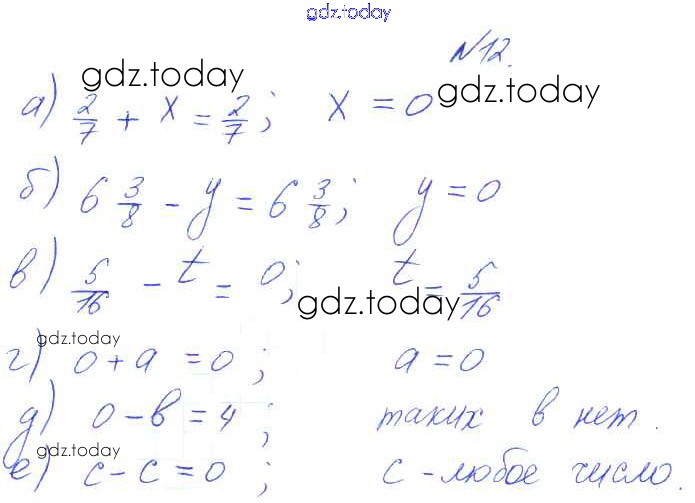 gdz.today
N12.
gdz.today
а) 2/7 + x = 2/7; x = 0 gdz.today
б) 6 3/8 - y = 6 3/8; y = 0
в) 5/16 - t = 0; t = 5/16
gdz.today
gdz.today
г) 0 + a = 0; a = 0
д) 0 - в = 4; таких в нет.
gdz.today
е) c - c = 0; c - любое число.